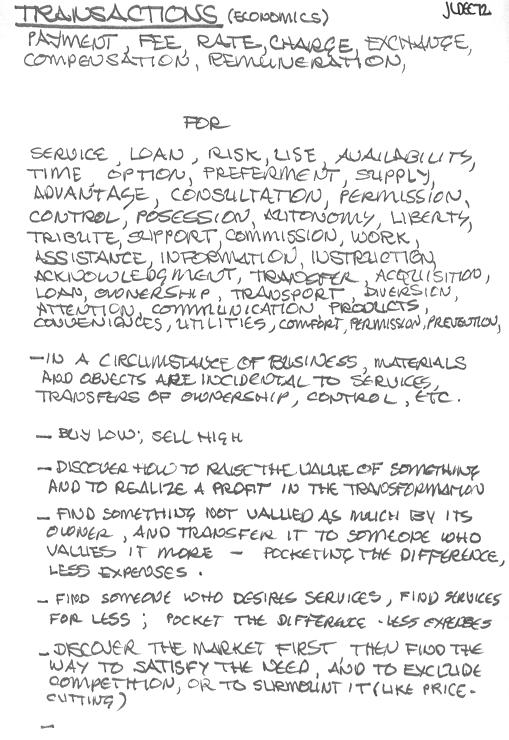 TRANSACTIONS (ECONOMICS)
JLDEC72
PAYMENT, FEE, RATE, CHARGE, EXCHANGE,
COMPENSATION, REMUNERATION,
FOR
SERVICE, LOAN, RISK, USE, AVAILABILITY,
TIME, OPTION, PREFERMENT, SUPPLY,
ADVANTAGE, CONSULTATION, PERMISSION,
CONTROL, POSESSION, AUTONOMY, LIBERTY,
TRIBUTE, SUPPORT, COMMISSION, WORK,
ASSISTANCE, INFORMATION, INSTRUCTION,
ACKNOWLEDGMENT, TRANSFER, ACQUISITION,
LOAN, OWNERSHIP, TRANSPORT, DIVERSION,
ATTENTION, COMMUNICATION, PRODUCTS,
CONVENIENCES, UTILITIES, COMFORT, PERMISSION, PREVENTION,
- IN A CIRCUMSTANCE OF BUSINESS, MATERIALS
AND OBJECTS ARE INCIDENTAL TO SERVICES,
TRANSFERS OF OWNERSHIP, CONTROL, ETC.
- BUY LOW; SELL HIGH
- DISCOVER HOW TO RAISE THE VALUE OF SOMETHING
AND TO REALIZE A PROFIT IN THE TRANSFORMATION
- FIND SOMETHING NOT VALUED AS MUCH BY ITS
OWNER, AND TRANSFER IT TO SOMEONE WHO
VALUES IT MORE - POCKETING THE DIFFERENCE,
LESS EXPENSES.
- FIND SOMEONE WHO DESIRES SERVICES, FIND SERVICES
FOR LESS; POCKET THE DIFFERENCE - LESS EXPENSES
- DISCOVER THE MARKET FIRST, THEN FIND THE
WAY TO SATISFY THE NEED, AND TO EXCLUDE
COMPETITION, OR TO SURMOUNT IT (LIKE PRICE-
CUTTING)
-